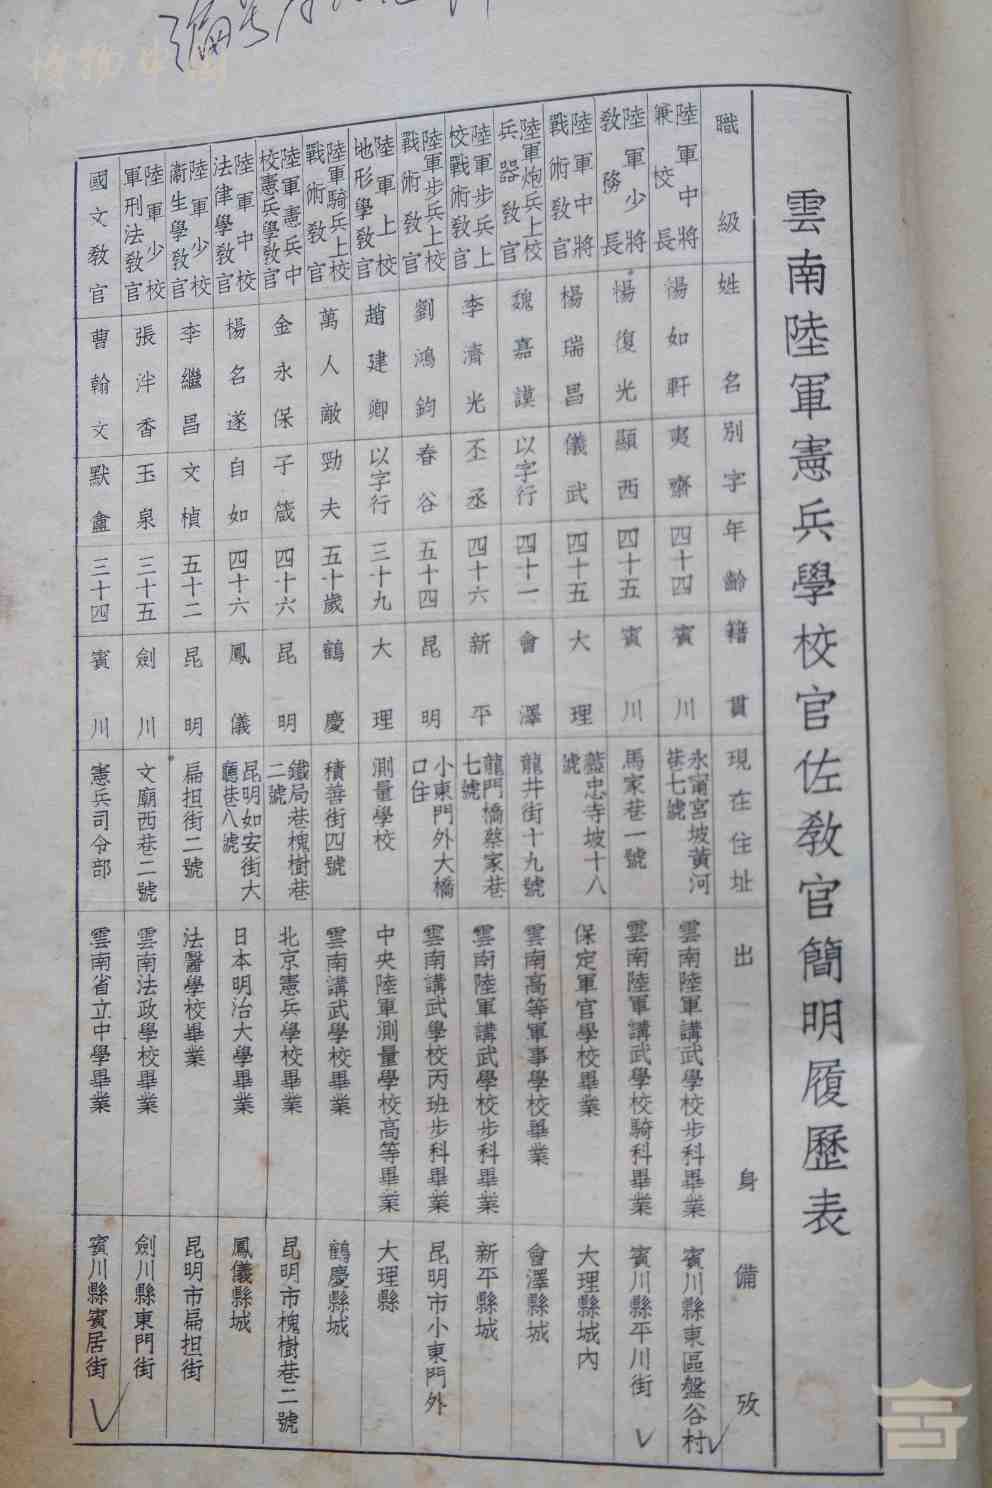 雲南陸軍憲兵學校官佐教官簡明履歷表
職級 姓名 別字 年齡 籍貫 現在住址 出身 備攷
陸軍中將兼校長 楊如軒 夷齋 四十四 賓川 永甯宮坡黃河巷七號 雲南陸軍講武學校步科畢業 賓川縣東區盤谷村
陸軍少將教務長 楊復光 顯西 四十五 賓川 馬家巷一號 雲南陸軍講武學校騎科畢業 賓川縣平川街
陸軍中將戰術教官 楊瑞昌 儀武 四十五 大理 藍忠寺坡十八號 保定軍官學校畢業 大理縣城內
陸軍炮兵上校兵器教官 魏嘉謨 以字行 四十一 會澤 龍井街十九號 雲南高等軍事學校畢業 會澤縣城
陸軍步兵上校戰術教官 李濟光 丕丞 四十六 新平 龍門橋蔡家巷七號 雲南陸軍講武學校步科畢業 新平縣城
陸軍步兵上校戰術教官 劉鴻鈞 春谷 五十四 昆明 小東門外大橋口住 雲南講武學校丙班步科畢業 昆明市小東門外
陸軍上校地形學教官 趙建卿 以字行 三十九 大理 測量學校 中央陸軍測量學校高等畢業 大理縣
陸軍騎兵上校戰術教官 萬人敵 勁夫 五十歲 鶴慶 積善街四號 雲南講武學校畢業 鶴慶縣城
陸軍憲兵中校憲兵學教官 金永保 子箴 四十六 昆明 鐵局巷槐樹巷二號 北京憲兵學校畢業 昆明市槐樹巷二號
陸軍中校法律學教官 楊名遂 自如 四十六 鳳儀 昆明如安街大廳巷八號 日本明治大學畢業 鳳儀縣城
陸軍少校衛生學教官 李繼昌 文楨 五十二 昆明 扁担街二號 法醫學校畢業 昆明市扁担街
陸軍少校軍刑法教官 張泮香 玉泉 三十五 劍川 文廟西巷二號 雲南法政學校畢業 劍川縣東門街
國文教官 曹翰文 默盦 三十四 賓川 憲兵司令部 雲南省立中學畢業 賓川縣賓居街